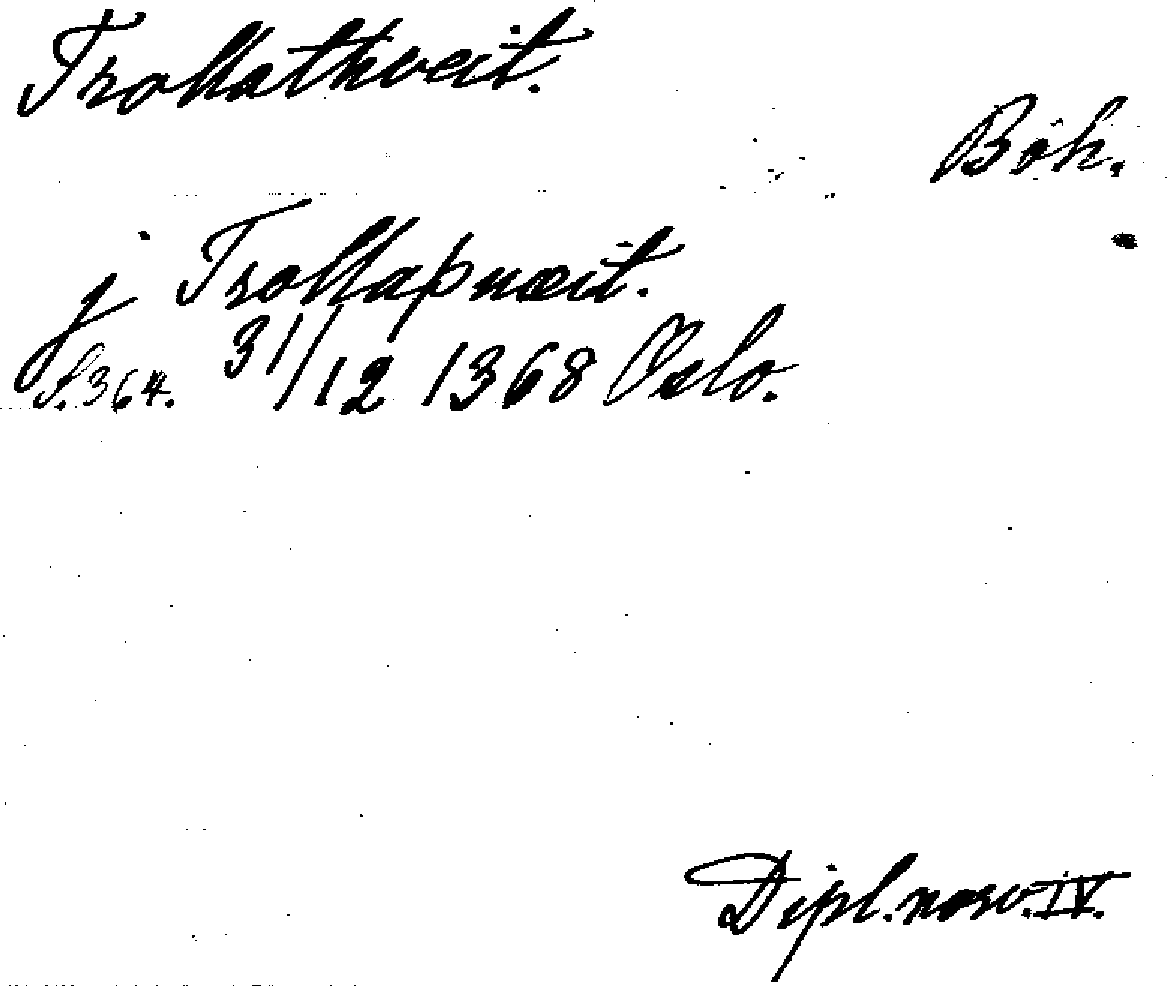 Trollathveit.
Böh.
j Trollaþuæit.
S. 364. 31/12 1368 Oslo.
Dipl. norv. IV.